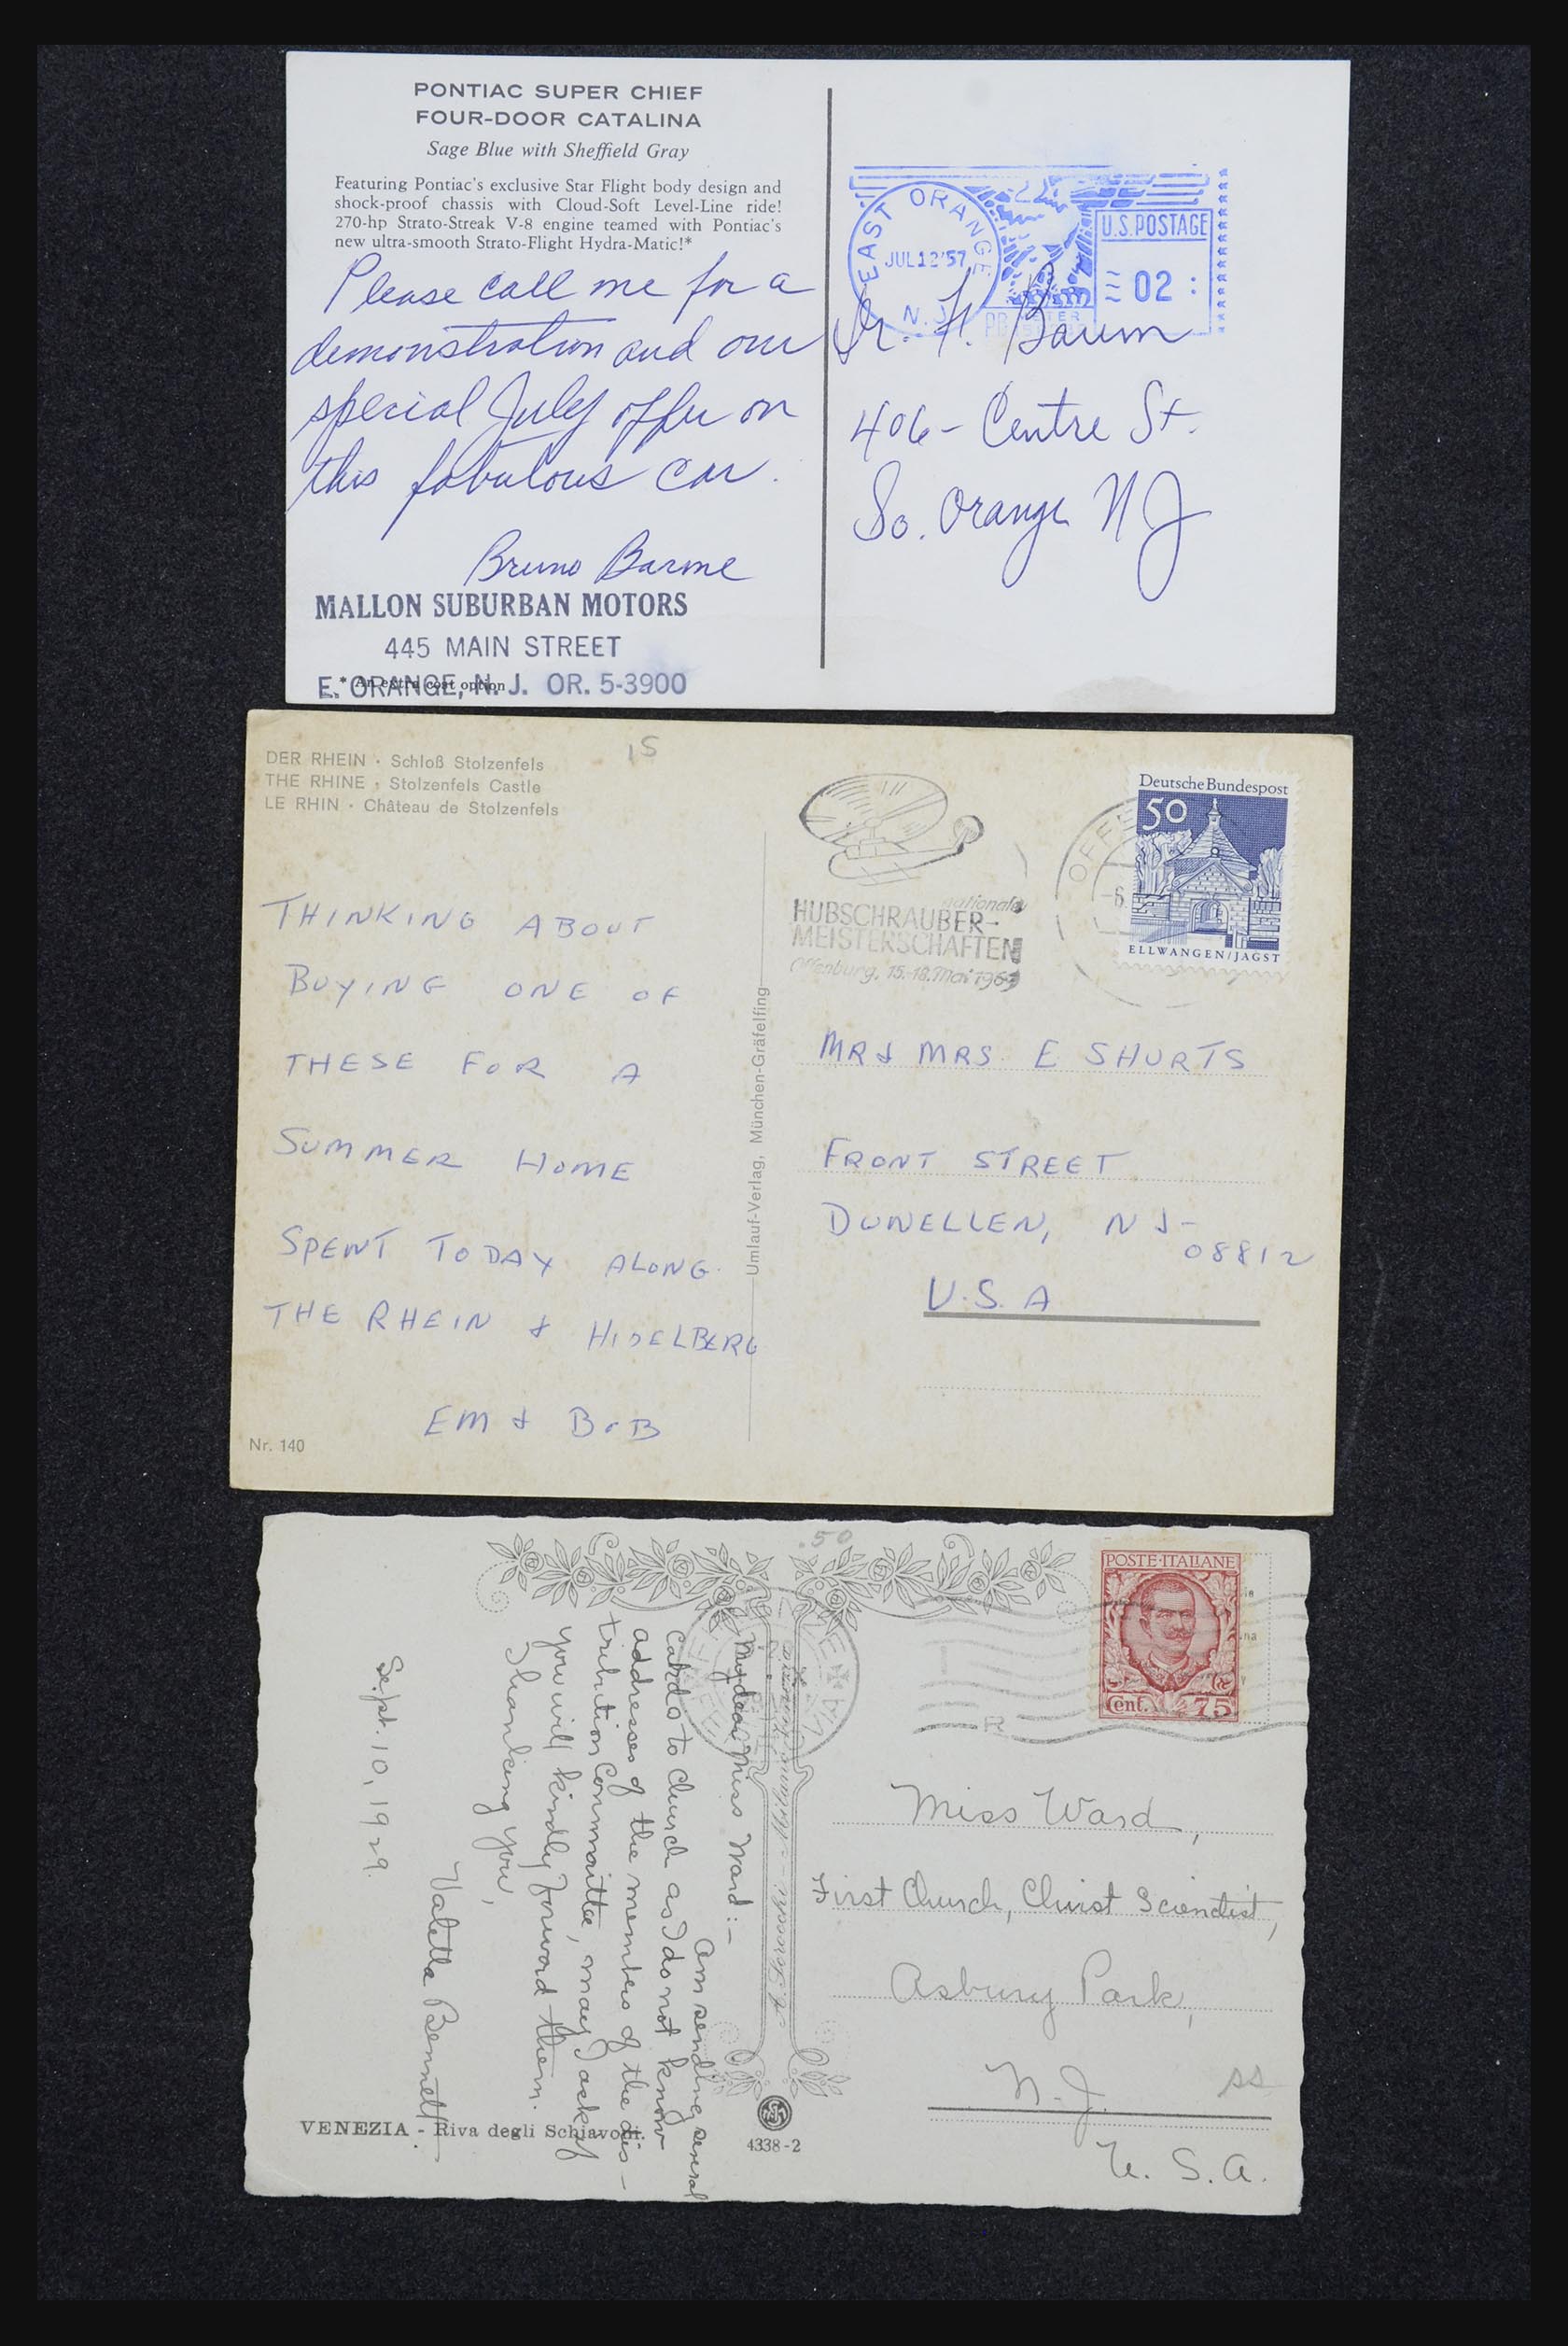 PONTIAC SUPER CHIEF
FOUR-DOOR CATALINA
Sage Blue with Sheffield Gray
Featuring Pontiac's exclusive Star Flight body design and
shock-proof chassis with Cloud-Soft Level-Line ride!
270-hp Strato-Streak V-8 engine teamed with Pontiac's
new ultra-smooth Strato-Flight Hydra-Matic!*
Please call me for a
demonstration and our
special July offer on
this fabulous car.
Bruno Barone
MALLON SUBURBAN MOTORS
445 MAIN STREET
E. ORANGE, N. J. OR. 5-3900
* An extra cost option
EAST ORANGE
JUL 12 '57
N.J.
U.S. POSTAGE
02
H. Baum
406 - Centre St.
So. Orange N J
15
DER RHEIN · Schloß Stolzenfels
THE RHINE · Stolzenfels Castle
LE RHIN · Château de Stolzenfels
THINKING ABOUT
BUYING ONE OF
THESE FOR A
SUMMER HOME
SPENT TODAY ALONG
THE RHEIN & HIDELBERG
EM & BOB
Nr. 140
Umlauf-Verlag, München-Gräfelfing
nationale
HUBSCHRAUBER-
MEISTERSCHAFTEN
Offenburg, 15.-18. Mai 1969
OFFE
-6.
Deutsche Bundespost
50
ELLWANGEN/JAGST
MR & MRS E SHURTS
FRONT STREET
DUNELLEN, NJ-
08812
U.S.A
.50
My dear Miss Ward:-
Am sending several
cards to church as I do not know
addresses of the members of the dis-
tribution Committee, may I ask if
you will kindly forward them.
Thanking you,
Valetta Bennett
Sept. 10, 1929.
VENEZIA - Riva degli Schiavoni.
4338-2
POSTE·ITALIANE
Cent. 75
Miss Ward,
First Church, Christ Scientist,
Asbury Park,
N. J.
SS
U. S. A.